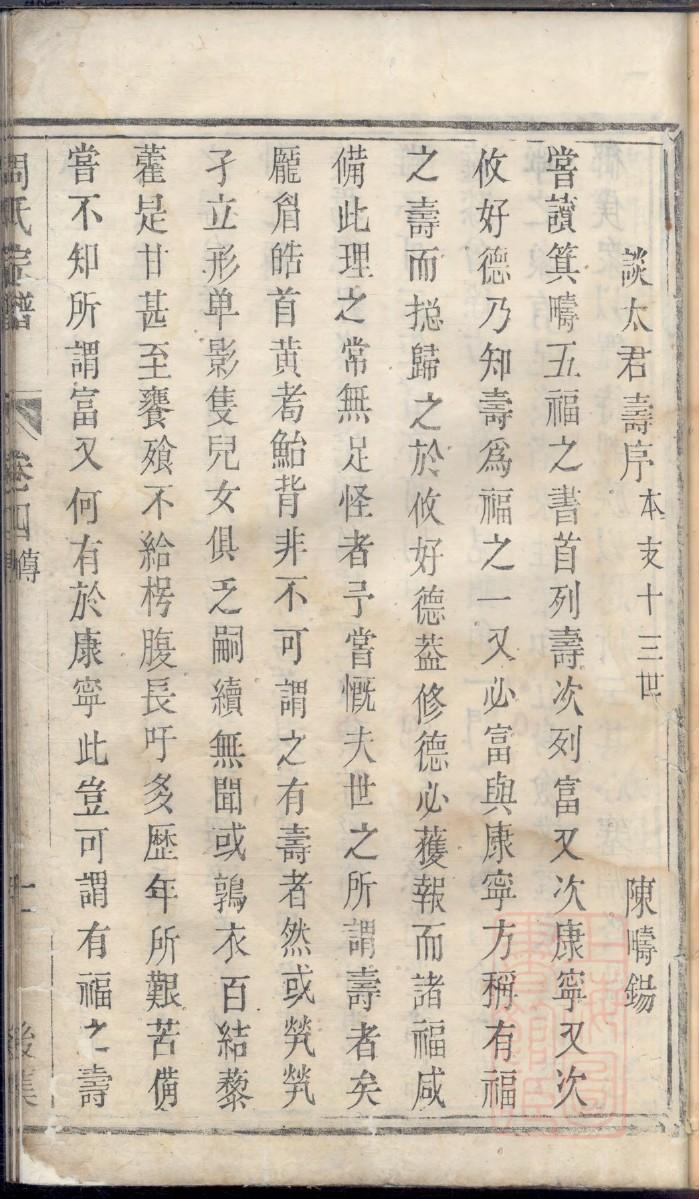 談太君壽序 本支十三世 陳疇錫
嘗讀箕疇五福之書首列壽次列富又次康寧又次
攸好德乃知壽爲福之一又必富與康寧方稱有福
之壽而捴歸之於攸好德葢修德必獲報而諸福咸
備此理之常無足怪者予嘗慨夫世之所謂壽者矣
厖眉皓首黃耉鮐背非不可謂之有壽者然或煢煢
孑立形单影隻兒女俱乏嗣續無聞或鶉衣百結藜
藿是甘甚至饔飱不給枵腹長吁多歷年所艱苦備
嘗不知所謂富又何有於康寧此豈可謂有福之壽
周氏宗譜 卷四傳